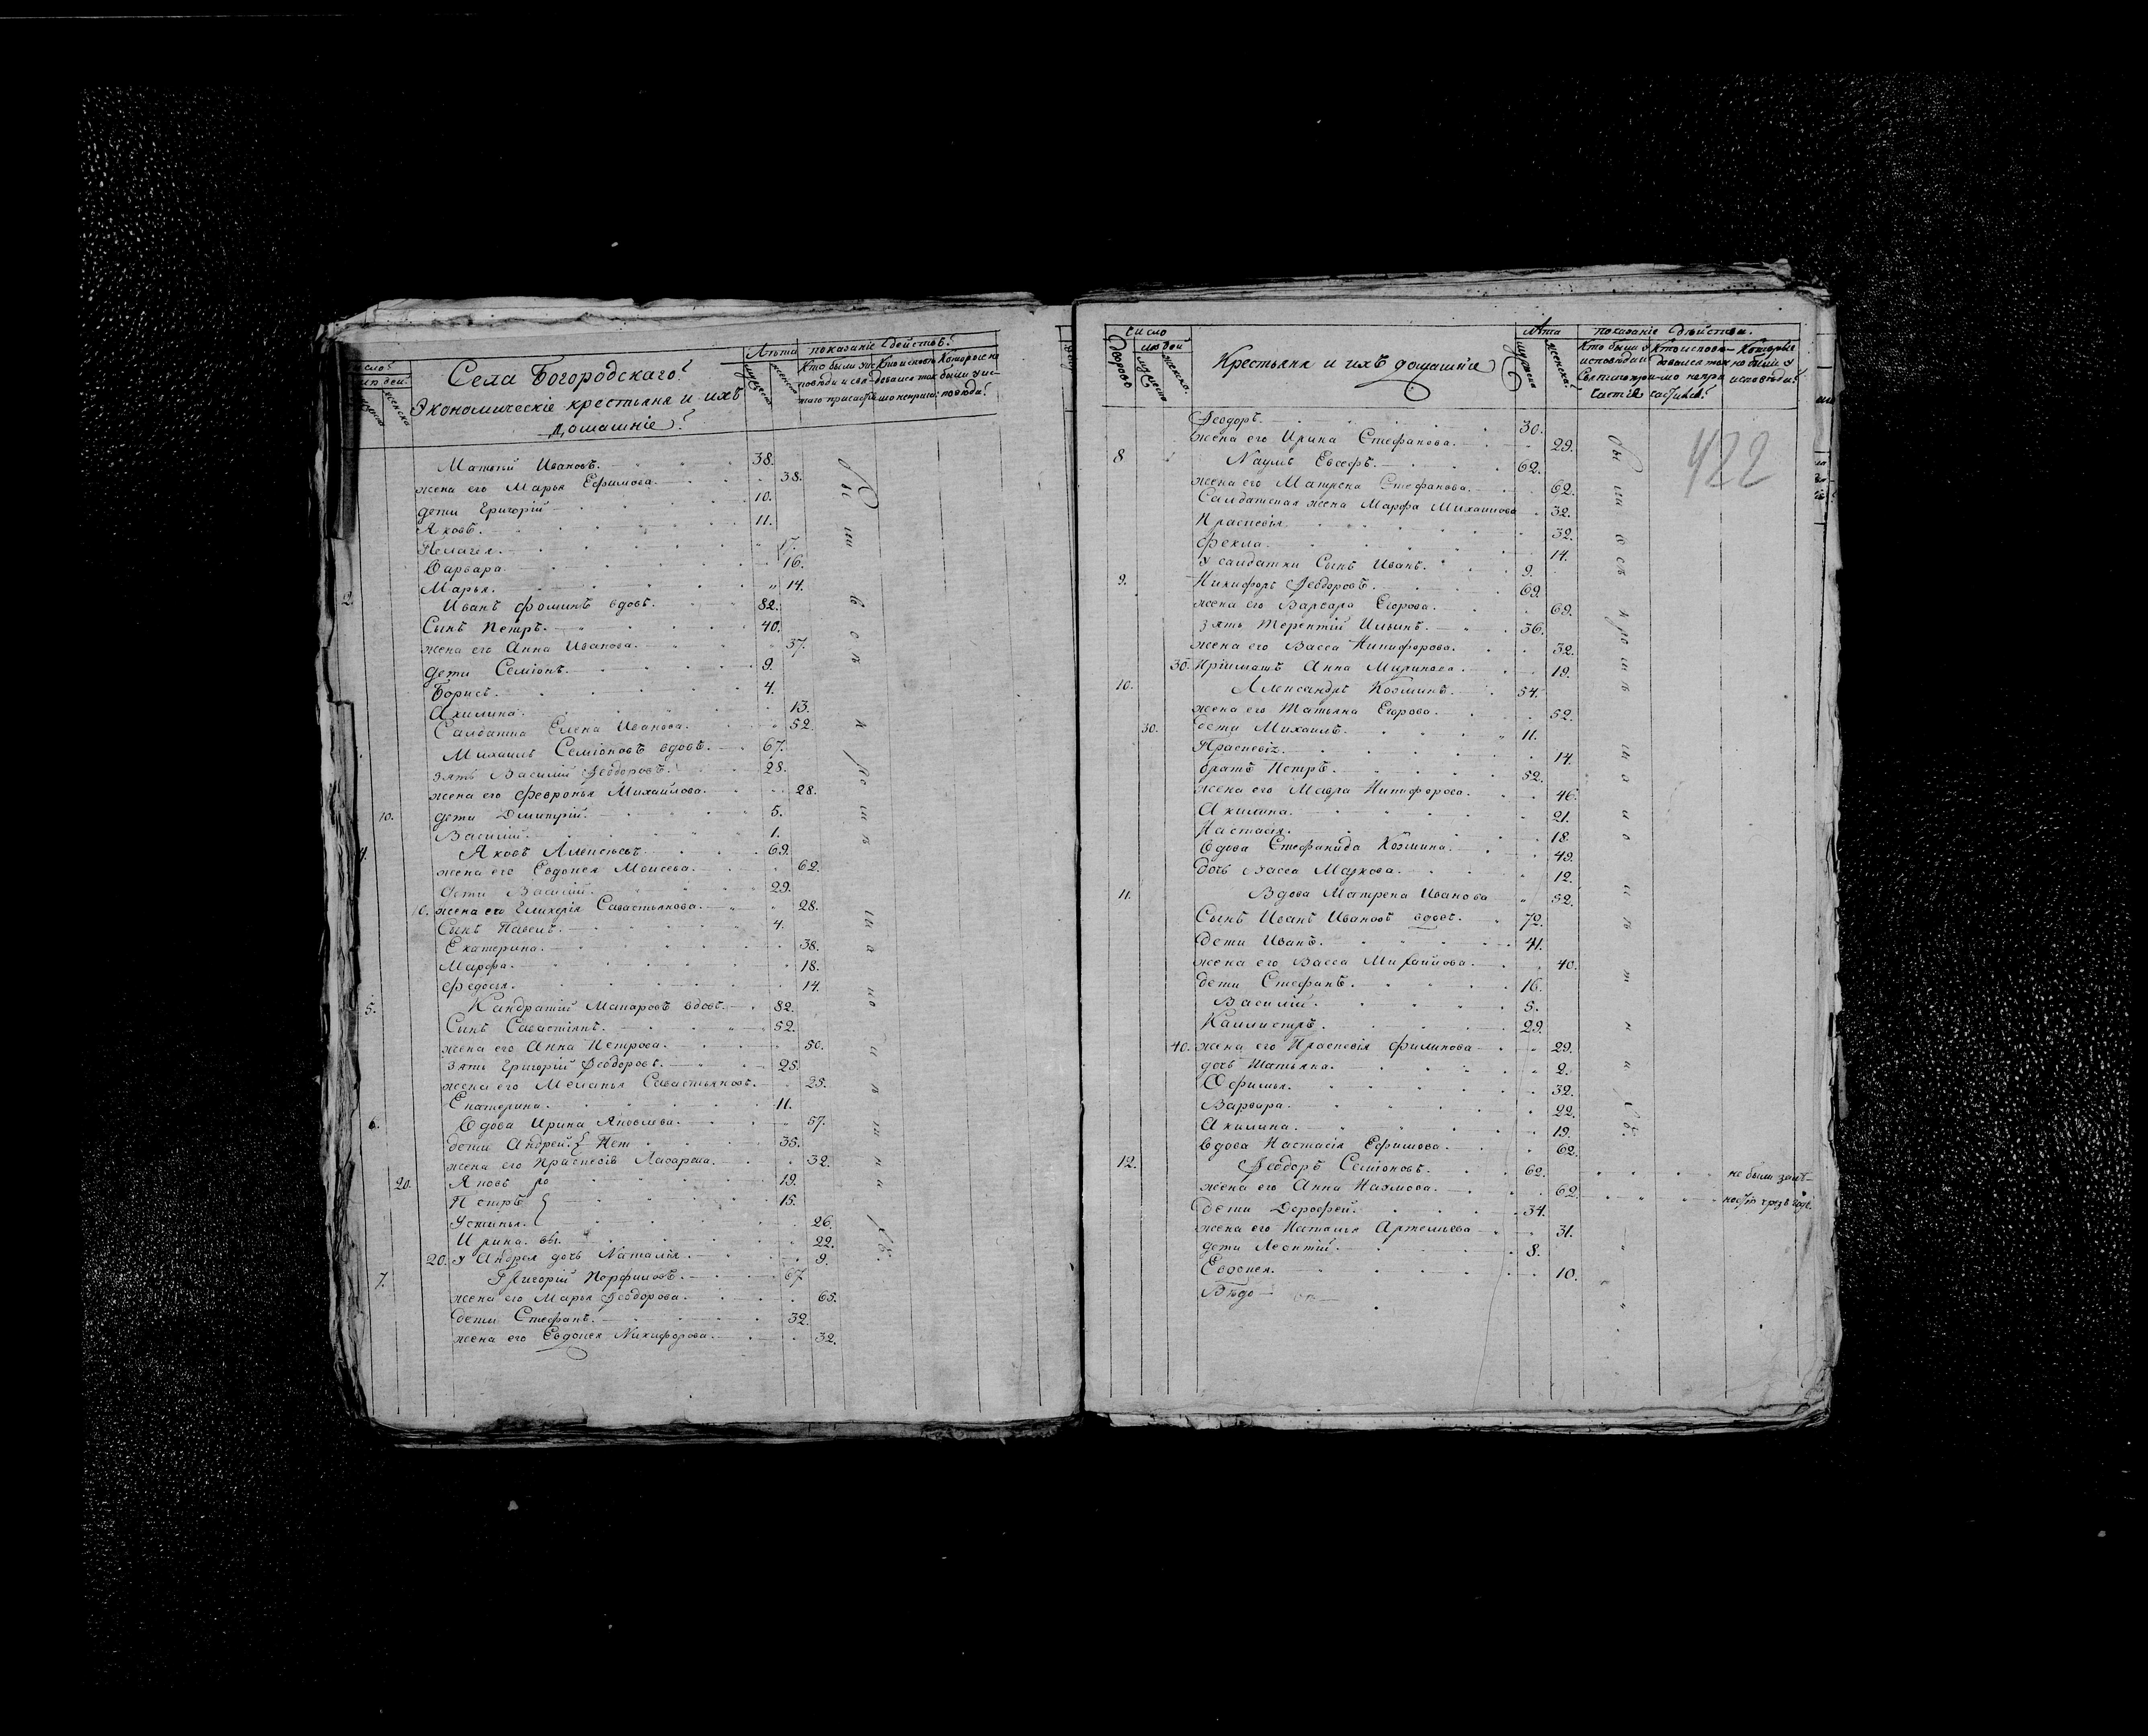 Села Богородскаго
Экономическіе крестьяна и ихъ
домашніе
Лѣта
показаніе действъ
Матвей Ивановъ. 38.
жена его Марья Ефимова. 38.
дети Григорій 10.
Яковъ. 11.
Пелагея. 17.
Варвара. 16.
Марья. 14.
2. Иванъ Фоминъ вдовъ. 82.
Сынъ Петръ. 40.
жена его Анна Иванова. 37.
дети Семіонъ. 9.
Борисъ. 4.
Акилина. 13.
Салдатка Елена Иванова. 52.
Михаилъ Семіоновъ вдовъ. 67.
зять Василій Феодоровъ. 28.
жена его Февронья Михайлова. 28.
10. дети Дмитрій. 5.
Василій. 1.
4. Яковъ Алексѣевъ. 69.
жена его Евдокея Моисева. 62.
дети Василій. 29.
10. жена его Гликерія Савастьянова. 28.
Сынъ Павелъ. 4.
Екатерина. 38.
Марфа. 18.
Федосья. 14.
5. Кандратій Макаровъ вдовъ. 82.
Сынъ Савастіянъ. 52.
жена его Анна Петрова. 50.
зять Григорій Феодоровъ. 25.
жена его Меланья Савастьянова. 25.
Екатерина. 11.
6. Вдова Ирина Яковлева. 57.
дети Андрей. 35.
жена его Праскевія Лазарева. 32.
20. Яковъ 19.
Петръ 15.
Устинья. 26.
Ирина. 22.
20. У Андрея дочь Наталія. 9.
7. Григорій Перфиловъ. 67.
жена его Марья Феодорова. 65.
дети Стефанъ. 32.
жена его Евдокея Никифорова. 32.
число
дворовъ
людей
Крестьяна и ихъ домашніе
Лѣта
показаніе действъ.
422
Феодоръ. 30.
жена его Ирина Стефанова. 29.
8 Наумъ Евсеѳъ. 62.
жена его Матрена Стефанова. 62.
Салдатская жена Марфа Михаилова 32.
Праскевія. 32.
Фекла. 14.
У салдатки Сынъ Иванъ. 9.
9. Никифоръ Феодоровъ. 69.
жена его Варвара Егорова. 69.
зять Терентій Ильинъ. 36.
жена его Васса Никифорова. 32.
30. Пріимашъ Анна Миринова. 19.
10. Александръ Козминъ. 54.
жена его Татьяна Егорова. 52.
30. дети Михаилъ. 11.
Праскевія. 14.
братъ Петръ. 52.
жена его Мавра Никифорова. 46.
Акилина. 21.
Настасія. 18.
Вдова Стефанида Козмина. 49.
дочь Васса Маркова. 12.
11. Вдова Матрена Иванова 52.
Сынъ Иванъ Ивановъ вдовъ. 72.
дети Иванъ. 41.
жена его Васса Михаилова. 40.
дети Стефанъ. 16.
Василій. 5.
Каллистръ. 29.
40. жена его Праскевія Филипова 29.
дочь Татьяна. 2.
Офимья. 32.
Варвара. 22.
Акилина. 19.
вдова Настасія Ефимова. 62.
12. Феодоръ Семіоновъ. 62. не были за лѣ-
жена его Анна Наумова. 62.
дети Дорофей. 34.
жена его Наталья Артемьева 31.
дети Леонтій. 8.
Евдокея. 10.